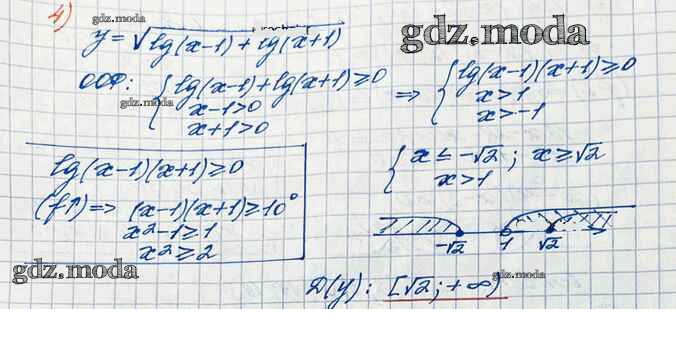 gdz.moda
4)
y = √(lg(x-1) + lg(x+1))
gdz.moda
ООФ: { lg(x-1) + lg(x+1) ≥ 0
x-1 > 0
x+1 > 0
gdz.moda
⇒ { lg(x-1)(x+1) ≥ 0
x > 1
x > -1
lg(x-1)(x+1) ≥ 0
(f↑) ⇒ (x-1)(x+1) ≥ 10⁰
x² - 1 ≥ 1
x² ≥ 2
{ x ≤ -√2 ; x ≥ √2
x > 1
-√2 1 √2
gdz.moda
gdz.moda
D(y): [√2; +∞)